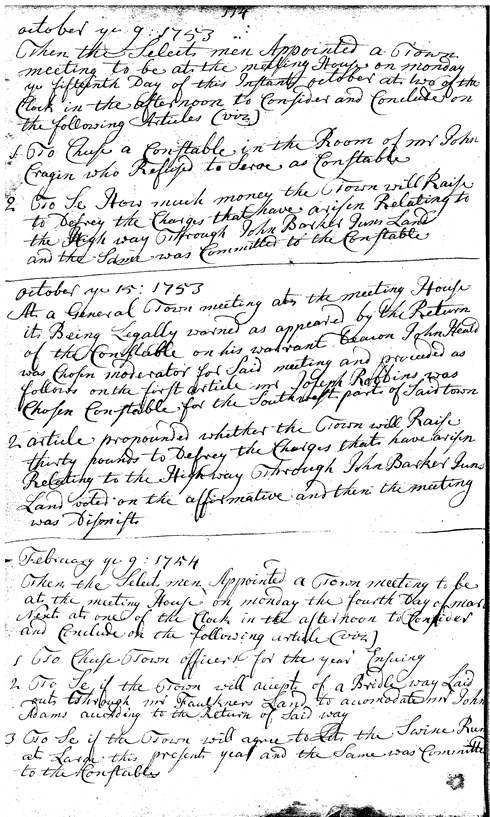 114
october ye 9: 1753
Then the Select men Appointed a Town
meeting to be at the meeting House on monday
ye fifteenth Day of this Instant october at two of the
Clock in the afternoon to Consider and Conclude on
the following Articles (viz)
1 To Chuse a Constable in the Room of mr John
Cragin who Refused to Serve as Constable
2 To Se How much money the Town will Raise
to Defrey the Charges that have arisen Relating to
the High way Through John Barker Juns Land
and the Same was Committed to the Constable
october ye 15: 1753
At a General Town meeting at the meeting House
its Being Legally warned as appeared by the Return
of the Constable on his warrant Deacon John Heald
was Chosen moderator for Said meeting and proceded as
follows on the first article mr Joseph Robbins was
Chosen Constable for the Southwest part of Said town
2 article propounded whether the Town will Raise
thirty pounds to Defrey the Charges that have arisen
Relating to the High way Through John Barker Juns
Land voted on the affirmative and then the meeting
was Dismist
February ye 9: 1754
Then the Select men Appointed a Town meeting to be
at the meeting House on monday the fourth Day of mar
Next at one of the Clock in the afternoon to Consider
and Conclude on the following article (viz)
1 To Chuse Town officers for the year Ensuing
2 To Se if the Town will acept of a Bridle way Laid
out Through mr Faulkners Land to acomodate mr John
Adams acording to the Return of Said way
3 To Se if the Town will agree to Let the Swine Run
at Large this present year and the Same was Committe
to the Constables